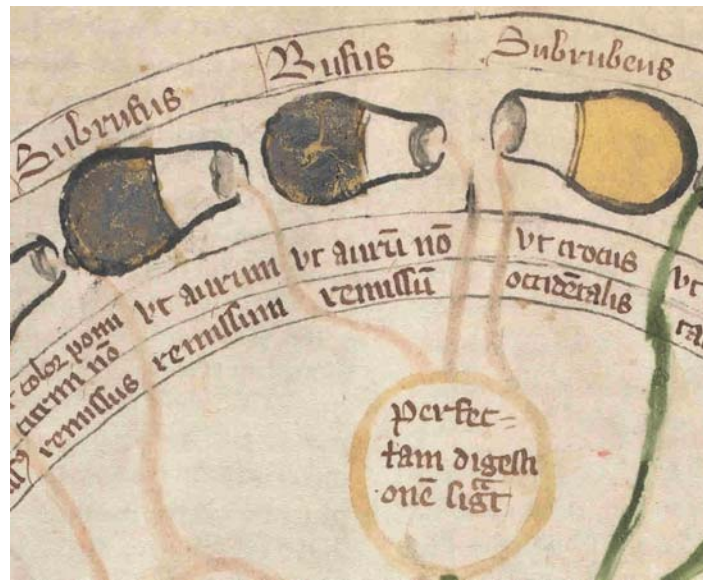 Subrufus
Rufus
Subrubeus
color pomi
citrini nō
remissus
vt aurum
remissum
vt aurū nō
remissū
vt crocus
occidētalis
vt
perfec=
tam digesti
onē sigͣt